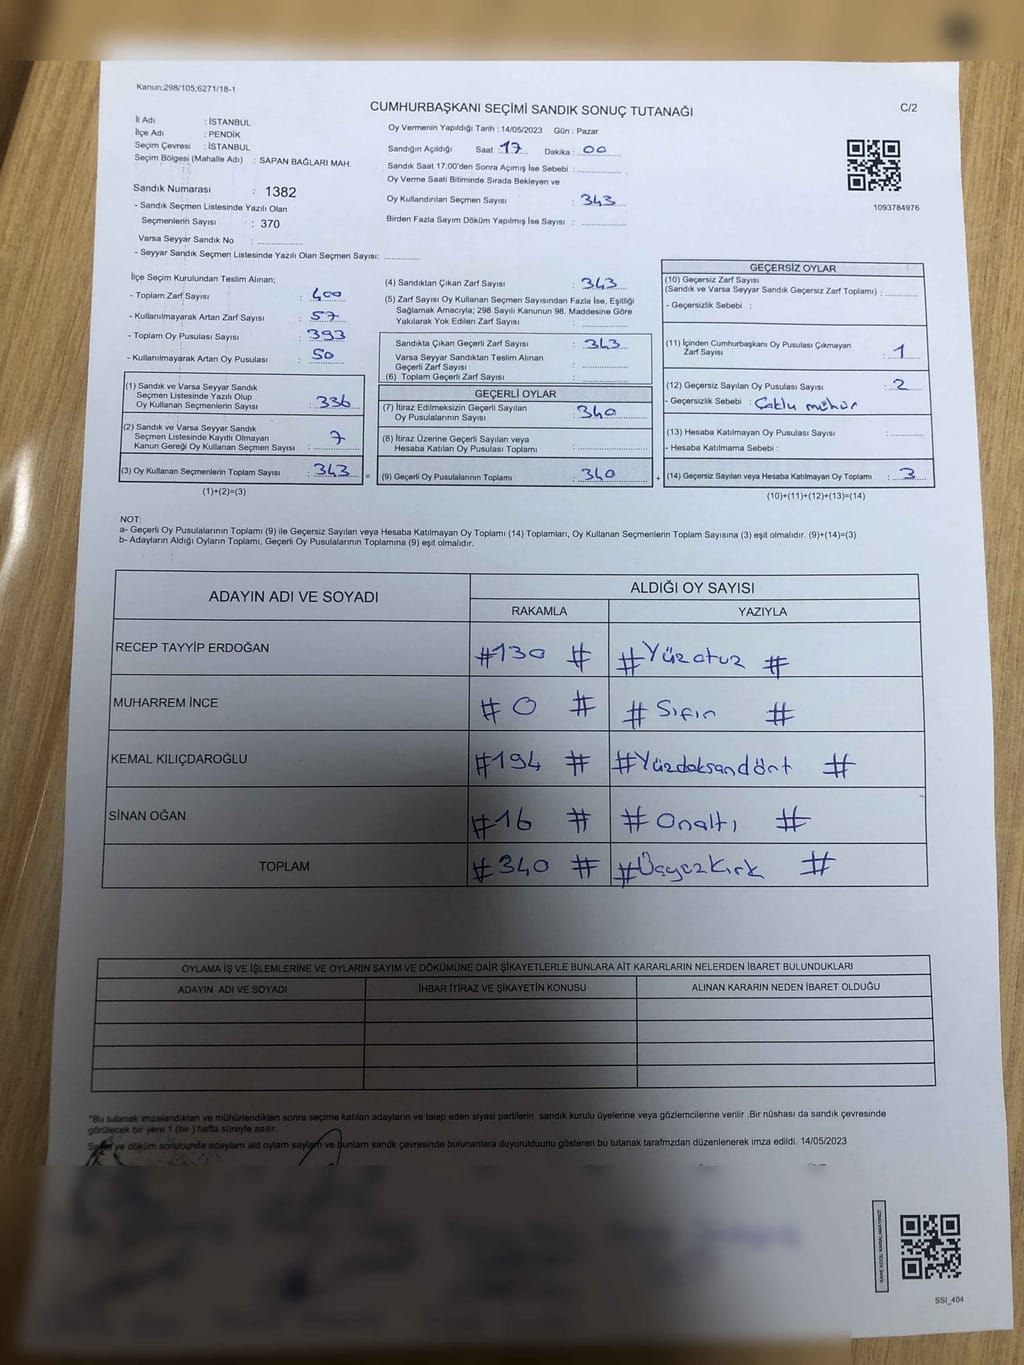 Kanun;298/105;6271/18-1
CUMHURBAŞKANI SEÇİMİ SANDIK SONUÇ TUTANAĞI
C/2
İl Adı : İSTANBUL
İlçe Adı : PENDİK
Seçim Çevresi : İSTANBUL
Seçim Bölgesi (Mahalle Adı) : SAPAN BAĞLARI MAH.
Sandık Numarası : 1382
- Sandık Seçmen Listesinde Yazılı Olan
Seçmenlerin Sayısı : 370
Varsa Seyyar Sandık No :
- Seyyar Sandık Seçmen Listesinde Yazılı Olan Seçmen Sayısı:
Oy Vermenin Yapıldığı Tarih : 14/05/2023 Gün : Pazar
Sandığın Açıldığı Saat : 17 Dakika : 00
Sandık Saat 17:00'den Sonra Açımış İse Sebebi :
Oy Verme Saati Bitiminde Sırada Bekleyen ve
Oy Kullandırılan Seçmen Sayısı : 343
Birden Fazla Sayım Döküm Yapılmış İse Sayısı :
1093784976
İlçe Seçim Kurulundan Teslim Alınan;
- Toplam Zarf Sayısı : 400
- Kullanılmayarak Artan Zarf Sayısı : 57
- Toplam Oy Pusulası Sayısı : 393
- Kullanılmayarak Artan Oy Pusulası : 50
(1) Sandık ve Varsa Seyyar Sandık
Seçmen Listesinde Yazılı Olup
Oy Kullanan Seçmenlerin Sayısı : 336
(2) Sandık ve Varsa Seyyar Sandık
Seçmen Listesinde Kayıtlı Olmayan
Kanun Gereği Oy Kullanan Seçmen Sayısı : 7
(3) Oy Kullanan Seçmenlerin Toplam Sayısı : 343 =
(1)+(2)=(3)
(4) Sandıktan Çıkan Zarf Sayısı : 343
(5) Zarf Sayısı Oy Kullanan Seçmen Sayısından Fazla İse, Eşitliği
Sağlamak Amacıyla; 298 Sayılı Kanunun 98. Maddesine Göre
Yakılarak Yok Edilen Zarf Sayısı :
Sandıkta Çıkan Geçerli Zarf Sayısı : 343
Varsa Seyyar Sandıktan Teslim Alınan
Geçerli Zarf Sayısı :
(6) Toplam Geçerli Zarf Sayısı :
GEÇERLİ OYLAR
(7) İtiraz Edilmeksizin Geçerli Sayılan
Oy Pusulalarının Sayısı : 340
(8) İtiraz Üzerine Geçerli Sayılan veya
Hesaba Katılan Oy Pusulası Toplamı :
(9) Geçerli Oy Pusulalarının Toplamı : 340 +
GEÇERSİZ OYLAR
(10) Geçersiz Zarf Sayısı
(Sandık ve Varsa Seyyar Sandık Geçersiz Zarf Toplamı) :
- Geçersizlik Sebebi :
(11) İçinden Cumhurbaşkanı Oy Pusulası Çıkmayan
Zarf Sayısı : 1
(12) Geçersiz Sayılan Oy Pusulası Sayısı : 2
- Geçersizlik Sebebi : Çoklu mühür
(13) Hesaba Katılmayan Oy Pusulası Sayısı :
- Hesaba Katılmama Sebebi :
(14) Geçersiz Sayılan veya Hesaba Katılmayan Oy Toplamı : 3
(10)+(11)+(12)+(13)=(14)
NOT:
a- Geçerli Oy Pusulalarının Toplamı (9) ile Geçersiz Sayılan veya Hesaba Katılmayan Oy Toplamı (14) Toplamları, Oy Kullanan Seçmenlerin Toplam Sayısına (3) eşit olmalıdır. (9)+(14)=(3)
b- Adayların Aldığı Oyların Toplamı, Geçerli Oy Pusulalarının Toplamına (9) eşit olmalıdır.
ADAYIN ADI VE SOYADI ALDIĞI OY SAYISI
RAKAMLA YAZIYLA
RECEP TAYYİP ERDOĞAN #130 # #Yüzotuz #
MUHARREM İNCE # 0 # # Sıfır #
KEMAL KILIÇDAROĞLU #194 # #Yüzdoksandört #
SİNAN OĞAN #16 # # Onaltı #
TOPLAM #340 # #Üçyüzkırk #
OYLAMA İŞ VE İŞLEMLERİNE VE OYLARIN SAYIM VE DÖKÜMÜNE DAİR ŞİKAYETLERLE BUNLARA AİT KARARLARIN NELERDEN İBARET BULUNDUKLARI
ADAYIN ADI VE SOYADI İHBAR İTİRAZ VE ŞİKAYETİN KONUSU ALINAN KARARIN NEDEN İBARET OLDUĞU
*Bu tutanak imzalandıktan ve mühürlendikten sonra seçime katılan adayların ve talep eden siyasi partilerin sandık kurulu üyelerine veya gözlemcilerine verilir .Bir nüshası da sandık çevresinde
görülecek bir yere 1 (bir ) hafta süreyle asılır.
ve döküm sonucunda adayların ald oyların sayların ve bunların sandık çevresinde bulunanlara duyurulduunu gösteren bu tutanak tarafmzdan düzenlenerek imza edildi. 14/05/2023
KARE KODU KARALAMAYINIZ!
SSI_404